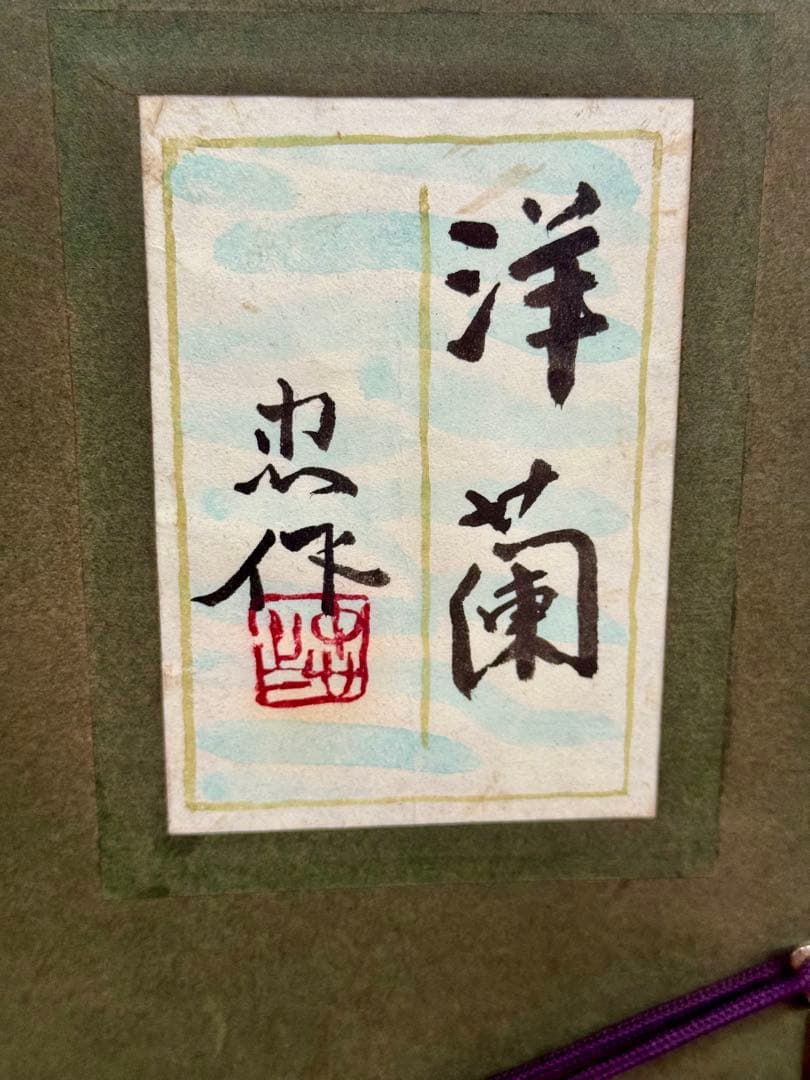 洋蘭
忠作